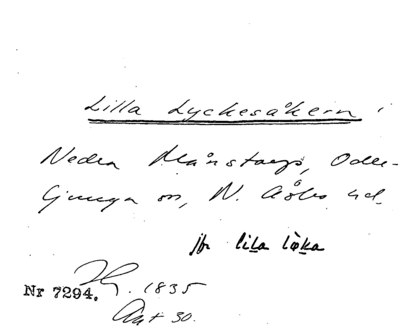 Lilla Lyckesåkern i
Nedra Månstorp, Odle-
ljunga sn, N. Åsbo hd.
jfr lila løka
Nr 7294. Hg. 1835
Akt 30.